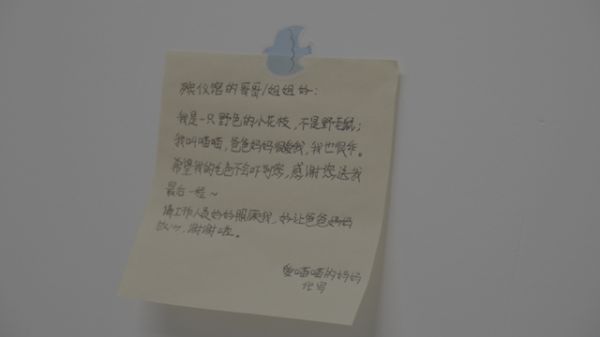 殡仪馆的哥哥/姐姐好：
我是一只野色的小花枝，不是野老鼠；
我叫喳喳，爸爸妈妈很爱我，我也很乖。
希望我的毛色不会吓到您，感谢您送我
最后一程~
请工作人员好好照顾我，好让爸爸妈妈
放心，谢谢啦。
爱喳喳的妈妈
代写